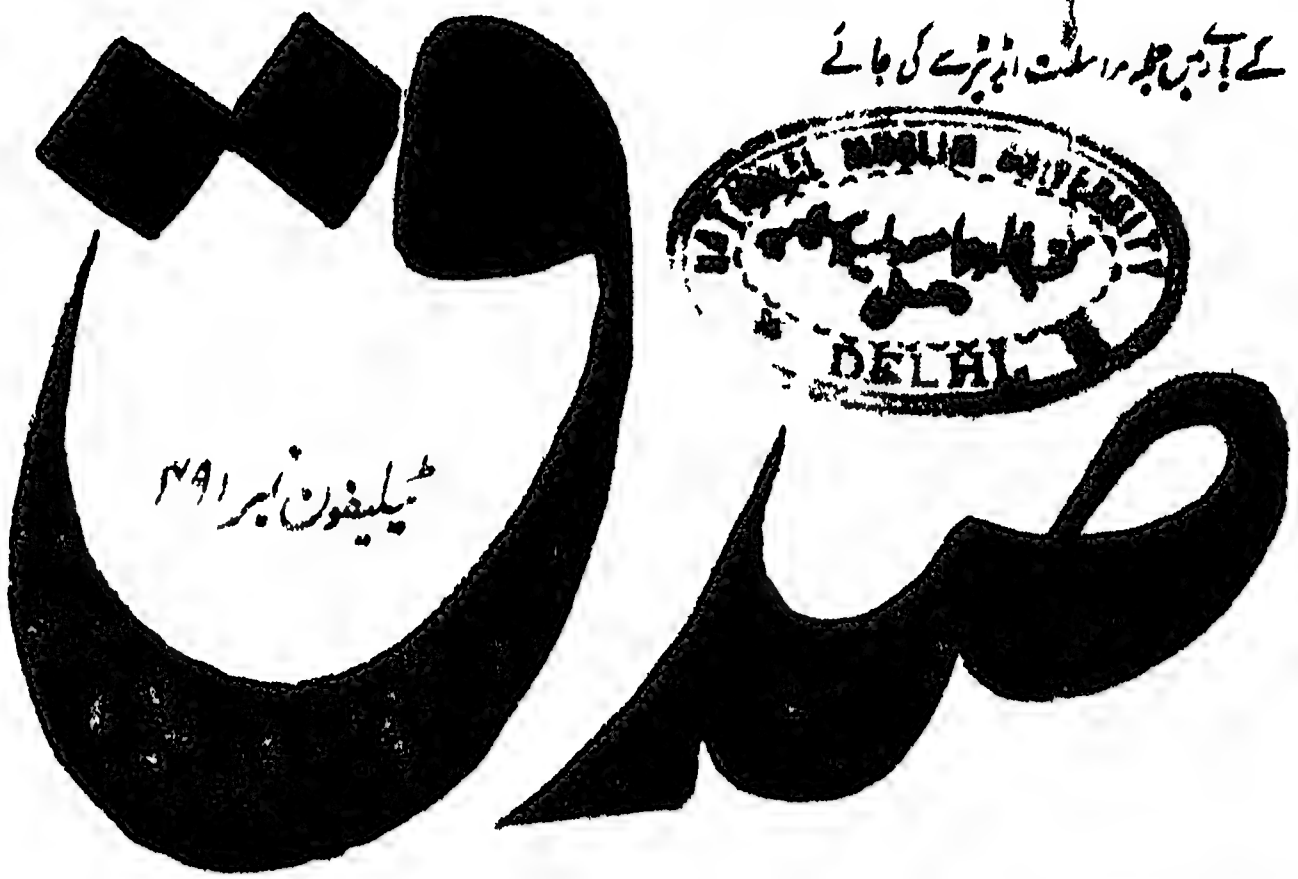 کے بارے میں جملہ مراسلت اڈیٹر سے کی جائے
NATIONAL MUSLIM UNIVERSITY
DELHI
صدق
ٹیلیفون نمبر ۴۹۱